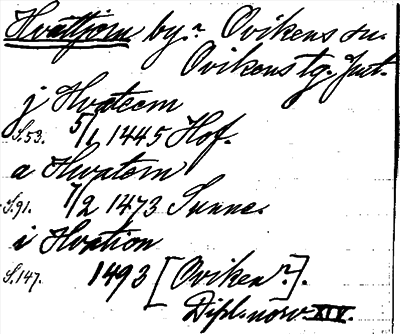 Hvattjom by.? Ovikens sn.
Ovikens tg. Jmt.
j Hvateem
S.53. 5/1 1445 Hof.
a Hwatom
S.91. 7/2 1473 Sunne.
i Hvation
S.147. 1493 [Oviken?].
Dipl. norv XIV.